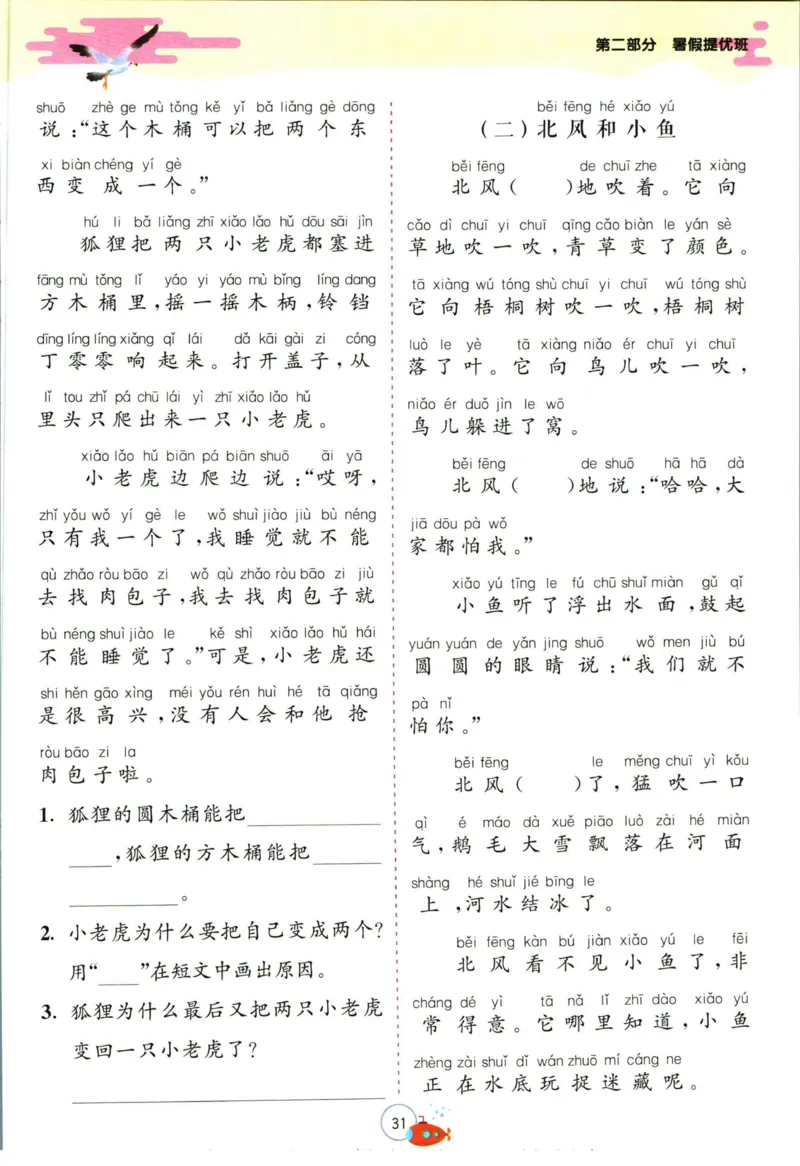 第二部分　暑假提优班
shuō zhè ge mù tǒng kě yǐ bǎ liǎng gè dōng
说：“这个木桶可以把两个东
xi biàn chéng yí gè
西变成一个。”
hú li bǎ liǎng zhī xiǎo lǎo hǔ dōu sāi jìn
狐狸把两只小老虎都塞进
fāng mù tǒng lǐ yáo yi yáo mù bǐng líng dang
方木桶里，摇一摇木柄，铃铛
dīng líng líng xiǎng qǐ lái dǎ kāi gài zi cóng
丁零零响起来。打开盖子，从
lǐ tou zhǐ pá chū lái yì zhī xiǎo lǎo hǔ
里头只爬出来一只小老虎。
xiǎo lǎo hǔ biān pá biān shuō āi yā
小老虎边爬边说：“哎呀，
zhǐ yǒu wǒ yí gè le wǒ shuì jiào jiù bù néng
只有我一个了，我睡觉就不能
qù zhǎo ròu bāo zi wǒ qù zhǎo ròu bāo zi jiù
去找肉包子，我去找肉包子就
bù néng shuì jiào le kě shì xiǎo lǎo hǔ hái
不能睡觉了。”可是，小老虎还
shi hěn gāo xìng méi yǒu rén huì hé tā qiǎng
是很高兴，没有人会和他抢
ròu bāo zi la
肉包子啦。
1. 狐狸的圆木桶能把____________
____，狐狸的方木桶能把______
__________。
2. 小老虎为什么要把自己变成两个？
用“____”在短文中画出原因。
3. 狐狸为什么最后又把两只小老虎
变回一只小老虎了？
běi fēng hé xiǎo yú
（二）北风和小鱼
běi fēng de chuī zhe tā xiàng
北风（　　）地吹着。它向
cǎo dì chuī yi chuī qīng cǎo biàn le yán sè
草地吹一吹，青草变了颜色。
tā xiàng wú tóng shù chuī yi chuī wú tóng shù
它向梧桐树吹一吹，梧桐树
luò le yè tā xiàng niǎo ér chuī yi chuī
落了叶。它向鸟儿吹一吹，
niǎo ér duǒ jìn le wō
鸟儿躲进了窝。
běi fēng de shuō hā hā dà
北风（　　）地说：“哈哈，大
jiā dōu pà wǒ
家都怕我。”
xiǎo yú tīng le fú chū shuǐ miàn gǔ qǐ
小鱼听了浮出水面，鼓起
yuán yuán de yǎn jing shuō wǒ men jiù bú
圆圆的眼睛说：“我们就不
pà nǐ
怕你。”
běi fēng le měng chuī yì kǒu
北风（　　）了，猛吹一口
qì é máo dà xuě piāo luò zài hé miàn
气，鹅毛大雪飘落在河面
shàng hé shuǐ jié bīng le
上，河水结冰了。
běi fēng kàn bú jiàn xiǎo yú le fēi
北风看不见小鱼了，非
cháng dé yì tā nǎ lǐ zhī dào xiǎo yú
常得意。它哪里知道，小鱼
zhèng zài shuǐ dǐ wán zhuō mí cáng ne
正在水底玩捉迷藏呢。
31